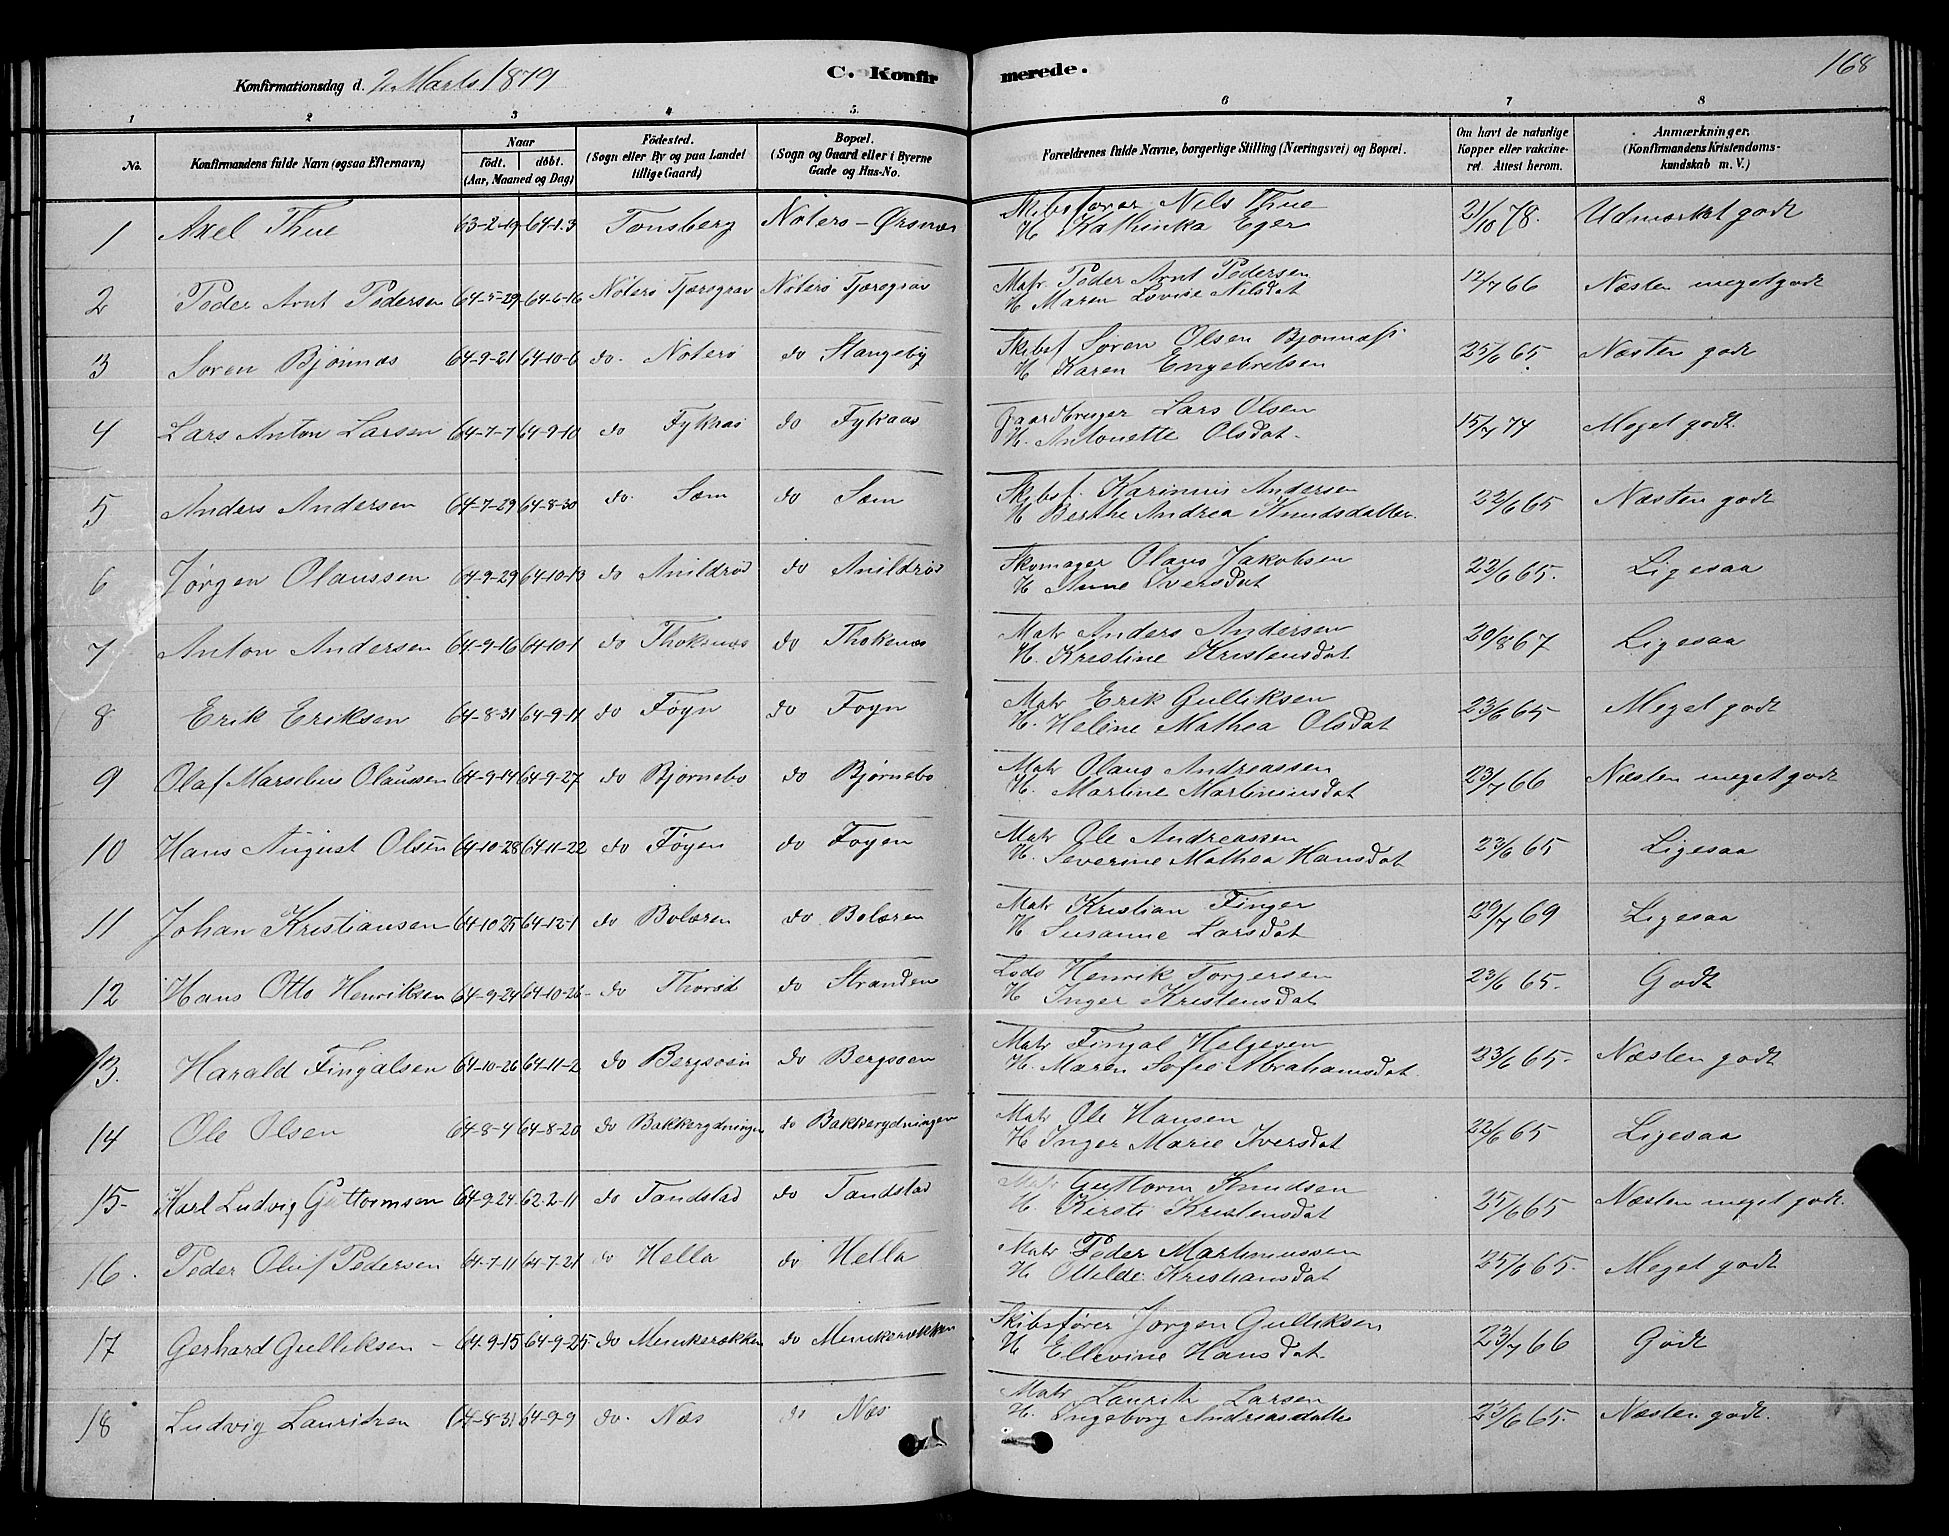 Konfirmationsdag d. 2 Marts 1879
C. Konfirmerede.
168
1 2 3 4 5. 6 7 8
No.
Konfirmandens fulde Navn (ogsaa Efternavn)
Naar
født. døbt.
(Aar, Maaned og Dag)
Födested.
(Sogn eller By og paa Landet
tillige Gaard)
Bopæl.
(Sogn og Gaard eller i Byerne
Gade og Hus-No.
Forældrenes fulde Navne, borgerlige Stilling (Næringsvei) og Bopæl.
Om havt de naturlige
Kopper eller vakcine-
ret. Attest herom.
Anmærkninger.
(Konfirmandens Kristendoms-
kundskab m. V.)
1 Axel Thue 63-2-19 64-1-3 Tønsberg Nøterø - Ørsnæs Skibsfører Nils Thue 21/10 78. Udmærket godt
H Kathinka Eger
2 Peder Arnt Pedersen 64-5-29 64-6-16 Nøterø Tjærsgrav Nøterø Tjærsgrav Matr Peder Arnt Pedersen 12/7 66 Næsten meget godt
H Maren Lovise Nilsdat
3 Søren Bjønnæs 64-9-21 64-10-6 do. Nøterø do Stangeby Skibsf Søren Olsen Bjønnæss 25/6 65 Næsten godt
H Karen Engebretsen
4 Lars Anton Larsen 64-7-7 64-9-10 do Fykaas do Fykaas Gaardbruger Lars Olsen 15/7 77 Meget godt.
H. Antonette Olsdat.
5 Anders Andersen 64-7-29 64-8-30 do. Sæm do Sæm Skibsf. Karinius Andersen 22/6 65 Næsten godt
H Berthe Andrea Knudsdatter.
6 Jørgen Olaussen 64-9-29 64-10-13 do Anildrød do Anildrød Skomager Olaus Jakobsen 22/6 65. Ligesaa
H Anne Iversdat
7 Anton Andersen 64-9-16 64-10-1 do Thokenæs do Thokenæs Matr Anders Andersen 20/8 67 Ligesaa
H. Kristine Kristensdat
8 Erik Eriksen 64-8-31 64-9-11 do Føyn do Føyn Matr Erik Gulliksen 23/6 65 Meget godt
H. Heléne Mathea Olsdat
9 Olaf Marselius Olaussen 64-9-14 64-9-27 do Bjørnebo do Bjørnebo Matr Olaus Andreassen 23/7 66 Næsten meget godt
H. Martine Martiniusdat
10 Hans August Olsen 64-10-28 64-11-22 do Føyen do Føyen Matr Ole Andreassen 23/6 65 Ligesaa
H. Severine Mathea Hansdat
11 Johan Kristiansen 64-10-25 64-12-1 do Bolæren do Bolæren Matr Kristian Finger 29/7 69 Ligesaa
H Susanne Larsdat
12 Hans Otto Henriksen 64-9-24 64-10-26- do Thorød do Stranden Lods Henrik Torgersen 23/6 65. Godt
H Inger Kristensdat
13. Harald Fingalsen 64-10-26 64-11-2 do Bergsøen do Bergsøen Matr Fingal Helgesen 23/6 65. Næsten godt
H. Maren Sofie Abrahamsdat.
14 Ole Olsen 64-8-4 64-8-20 do Bakkerydningen do Bakkerydningen Matr Ole Hansen 22/6 65 Ligesaa
H Inger Marie Iversdat
15- Karl Ludvig Guttormsen 64-9-24 62-2-11 do Tandstad do Tandstad Matr Guttorm Knudsen 25/6 65 Næsten meget godt.
H. Kirsti Kristensdat
16. Peder Oluf Pedersen 64-7-11 64-7-21 do Hella do Hella Matr Peder Martiniussen 25/6 65. Meget godt
H. Otilde Kristiansdat
17 Gerhard Gulliksen - 64-9-15 64-9-25- do Menkerøkken do Menkerøkken Skibsfører Jørgen Gulliksen 23/7 66 Godt
H Ellevine Hansdat.
18 Ludvig Lauritzen 64-8-31 64-9-9 do. Næs do Næs Matr Lauritz Larsen 23/6 65. Næsten godt.
H. Ingeborg Andreasdatter